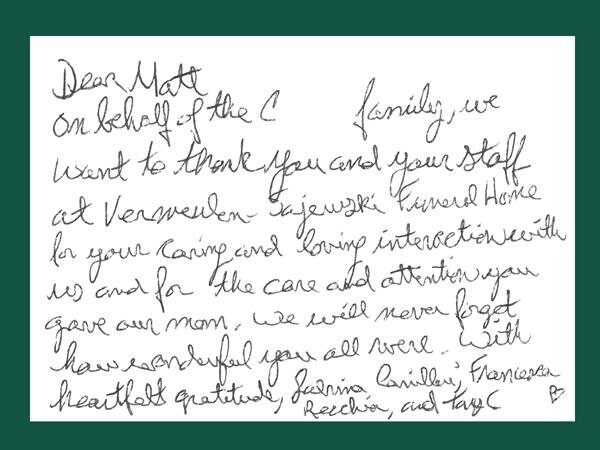 Dear Matt
On behalf of the C family, we
want to thank you and your staff
at Vermeulen-Sajewski Funeral Home
for your caring and loving interaction with
us and for the care and attention you
gave our mom. We will never forget
how wonderful you all were. With
heartfelt gratitude, Sabrina Francesca
Recchia, and Tany C